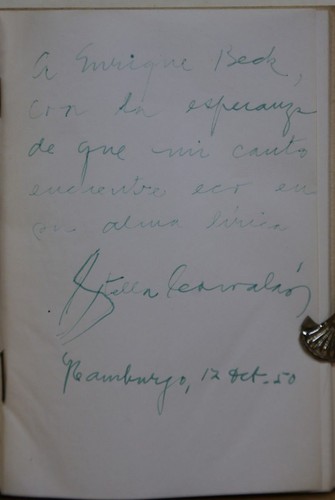 A Enrique Beck,
con la esperanza
de que mi canto
encuentre eco en
su alma lírica
Stella Corvalán
Hamburgo, 12 Oct. 50